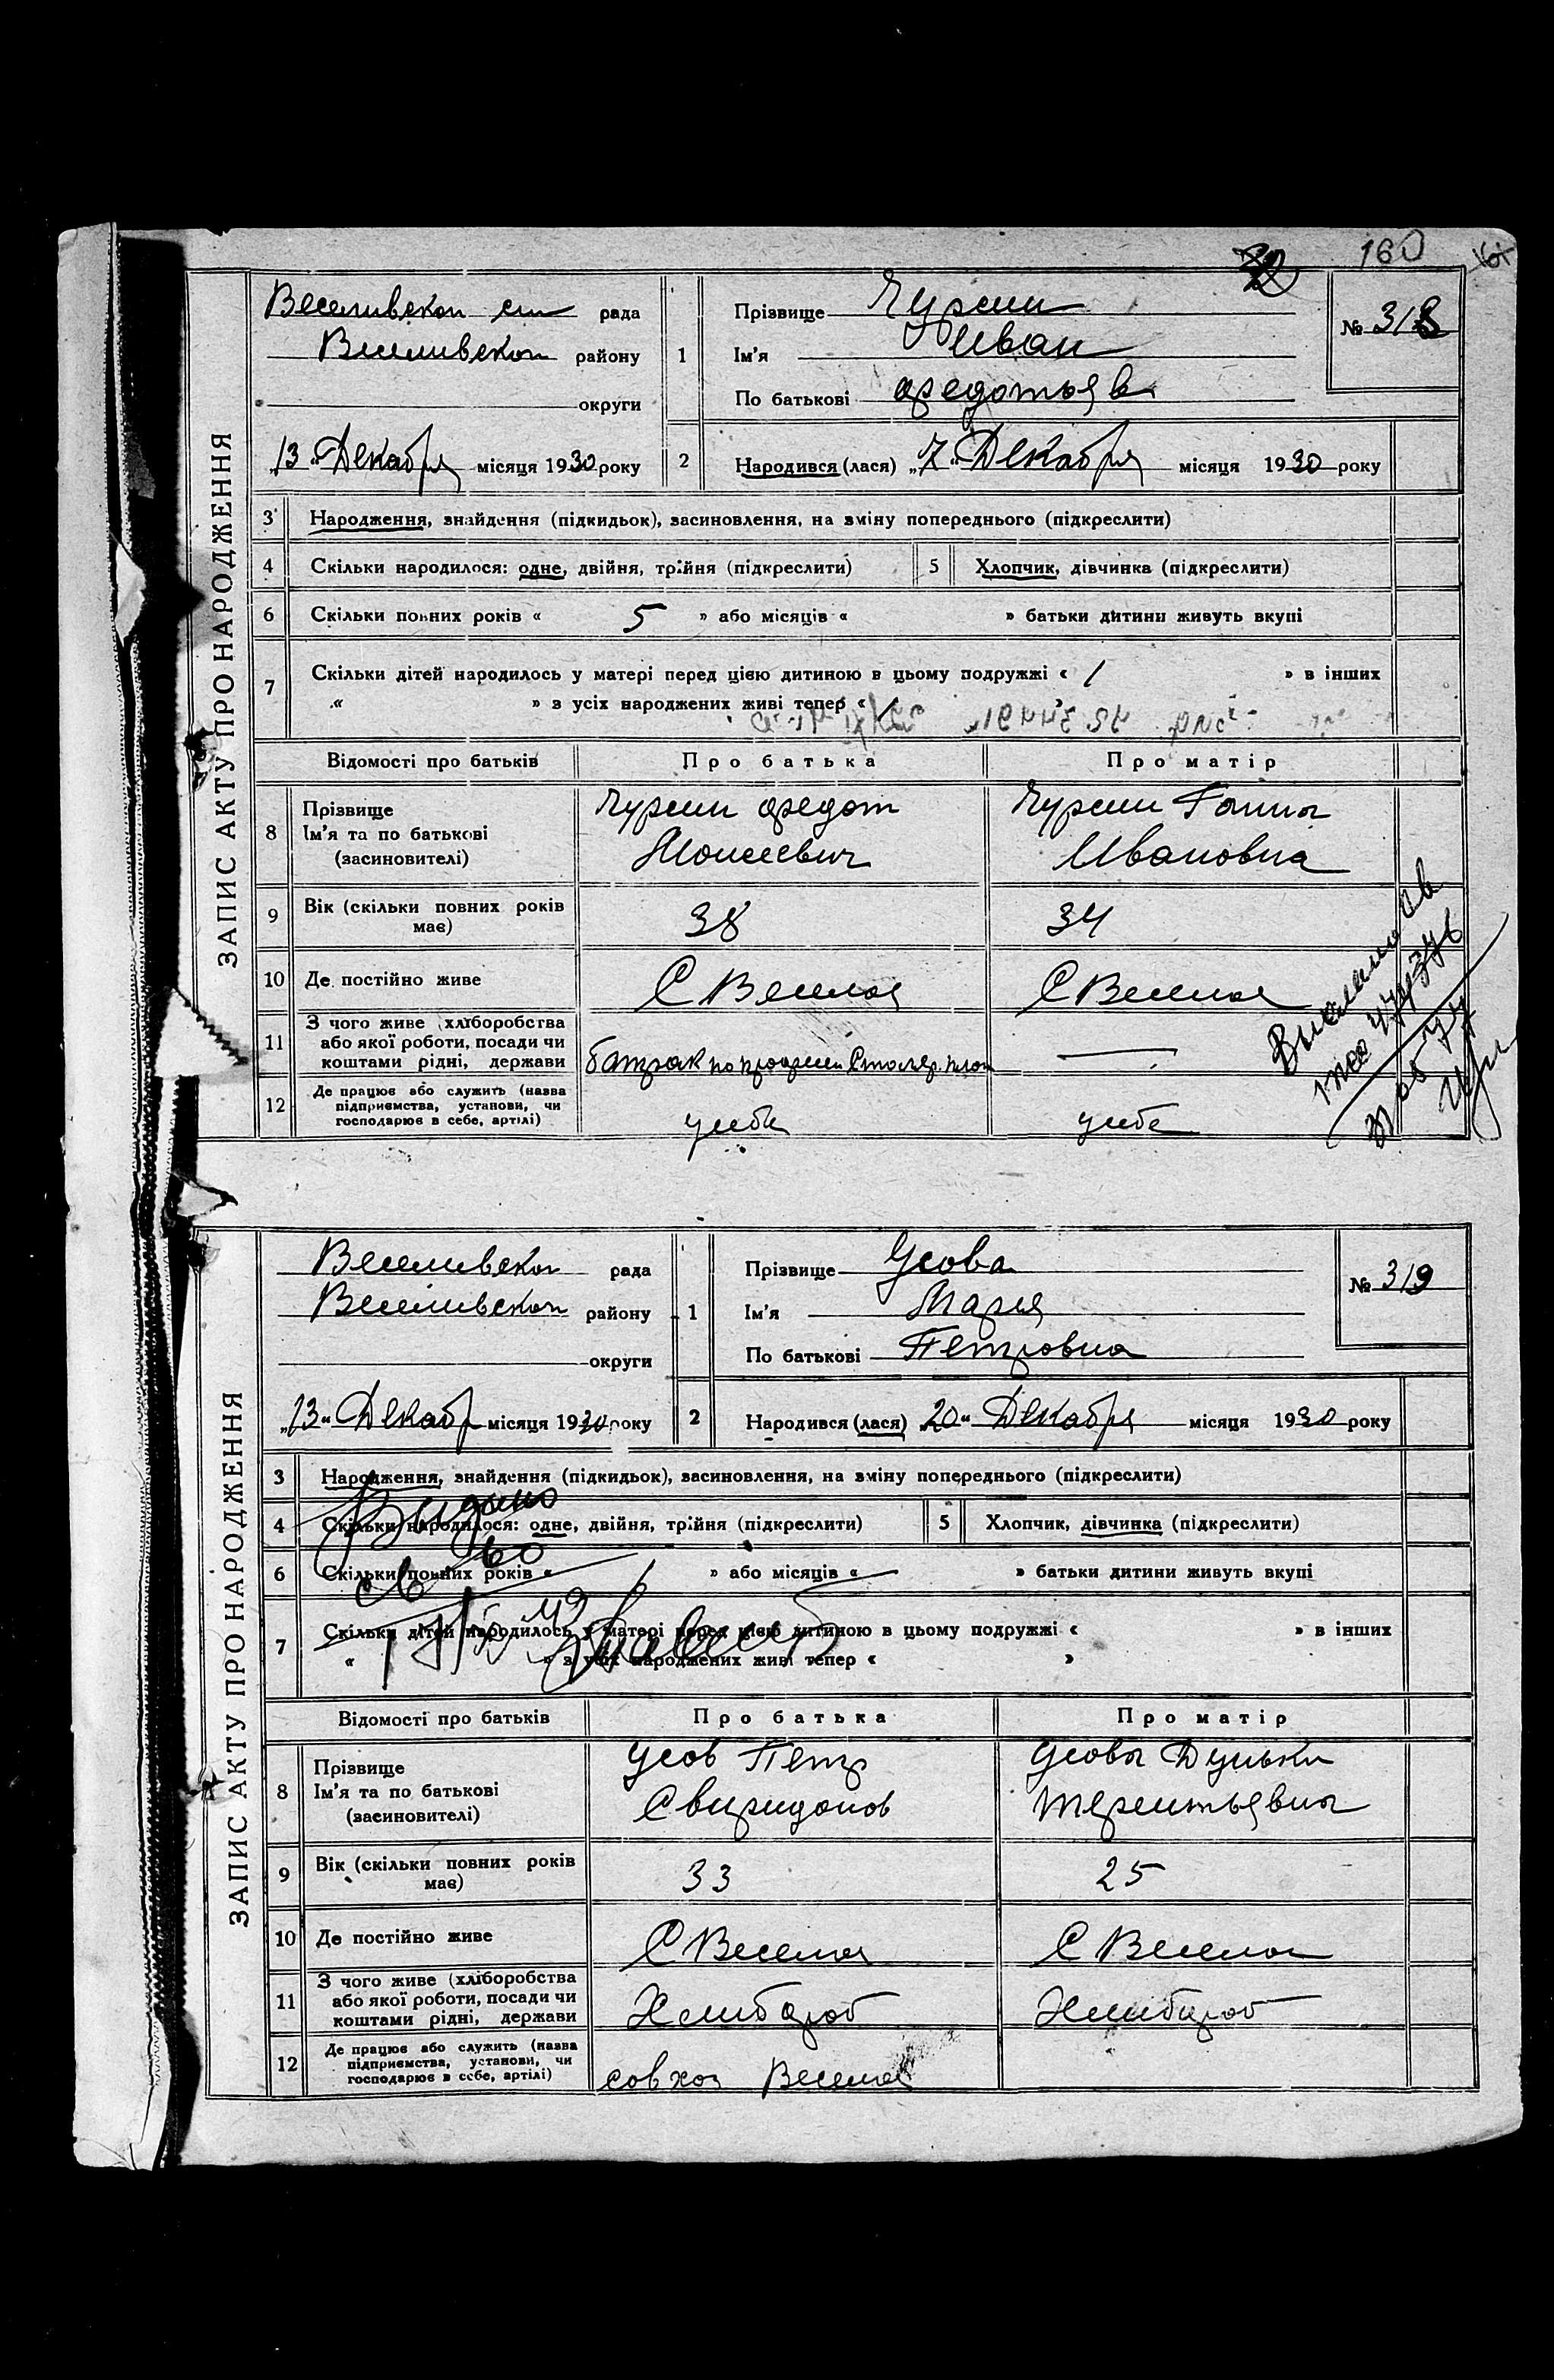 160
ЗАПИС АКТУ ПРО НАРОДЖЕННЯ
Веселивской рада
района району
округи
„13“ Декабря місяця 1930 року
1
Прізвище Чурсин
Ім'я Иван
По батькові Федотьев
№ 318
2
Народився (лася) „7“ Декабря місяця 1930 року
3 Народження, знайдення (підкидьок), засиновлення, на зміну попереднього (підкреслити)
4 Скільки народилося: одне, двійня, трійня (підкреслити) 5 Хлопчик, дівчинка (підкреслити)
6 Скільки повних років « 5 » або місяців « » батьки дитини живуть вкупі
7 Скільки дітей народилось у матері перед цією дитиною в цьому подружжі « 1 » в інших
« » з усіх народжених живі тепер «
Відомості про батьків Про батька Про матір
8 Прізвище Чурсин Федот Чурсин Ганна
Ім'я та по батькові Моисеевич Ивановна
(засиновителі)
9 Вік (скільки повних років має) 38 34
10 Де постійно живе С Веселое С Веселое
11 З чого живе (хліборобства
або якої роботи, посади чи
коштами рідні, держави батрак по професии Столяр. —
12 Де працює або служить (назва
підприємства, установи, чи
господарює в себе, артілі) у себе у себе
ЗАПИС АКТУ ПРО НАРОДЖЕННЯ
Веселивской рада
Веселивской району
округи
„13“ Декабр місяця 1930 року
1
Прізвище Усова
Ім'я Марья
По батькові Петровна
№ 319
2
Народився (лася) 20“ Декабря місяця 1930 року
3 Народження, знайдення (підкидьок), засиновлення, на зміну попереднього (підкреслити)
4 Скільки народилося: одне, двійня, трійня (підкреслити) 5 Хлопчик, дівчинка (підкреслити)
Выдано
св во
6 Скільки повних років « » або місяців « — » батьки дитини живуть вкупі
7 Скільки дітей народилось у матері перед цією дитиною в цьому подружжі « » в інших
« » з усіх народжених живі тепер « »
Відомості про батьків Про батька Про матір
8 Прізвище Усов Петр Усовы Дуньки
Ім'я та по батькові Свиридонов Терентьевны
(засиновителі)
9 Вік (скільки повних років має) 33 25
10 Де постійно живе С Веселое С Веселое
11 З чого живе (хліборобства
або якої роботи, посади чи
коштами рідні, держави Хлибороб Хлибороб
12 Де працює або служить (назва
підприємства, установи, чи
господарює в себе, артілі) совхоз Веселое